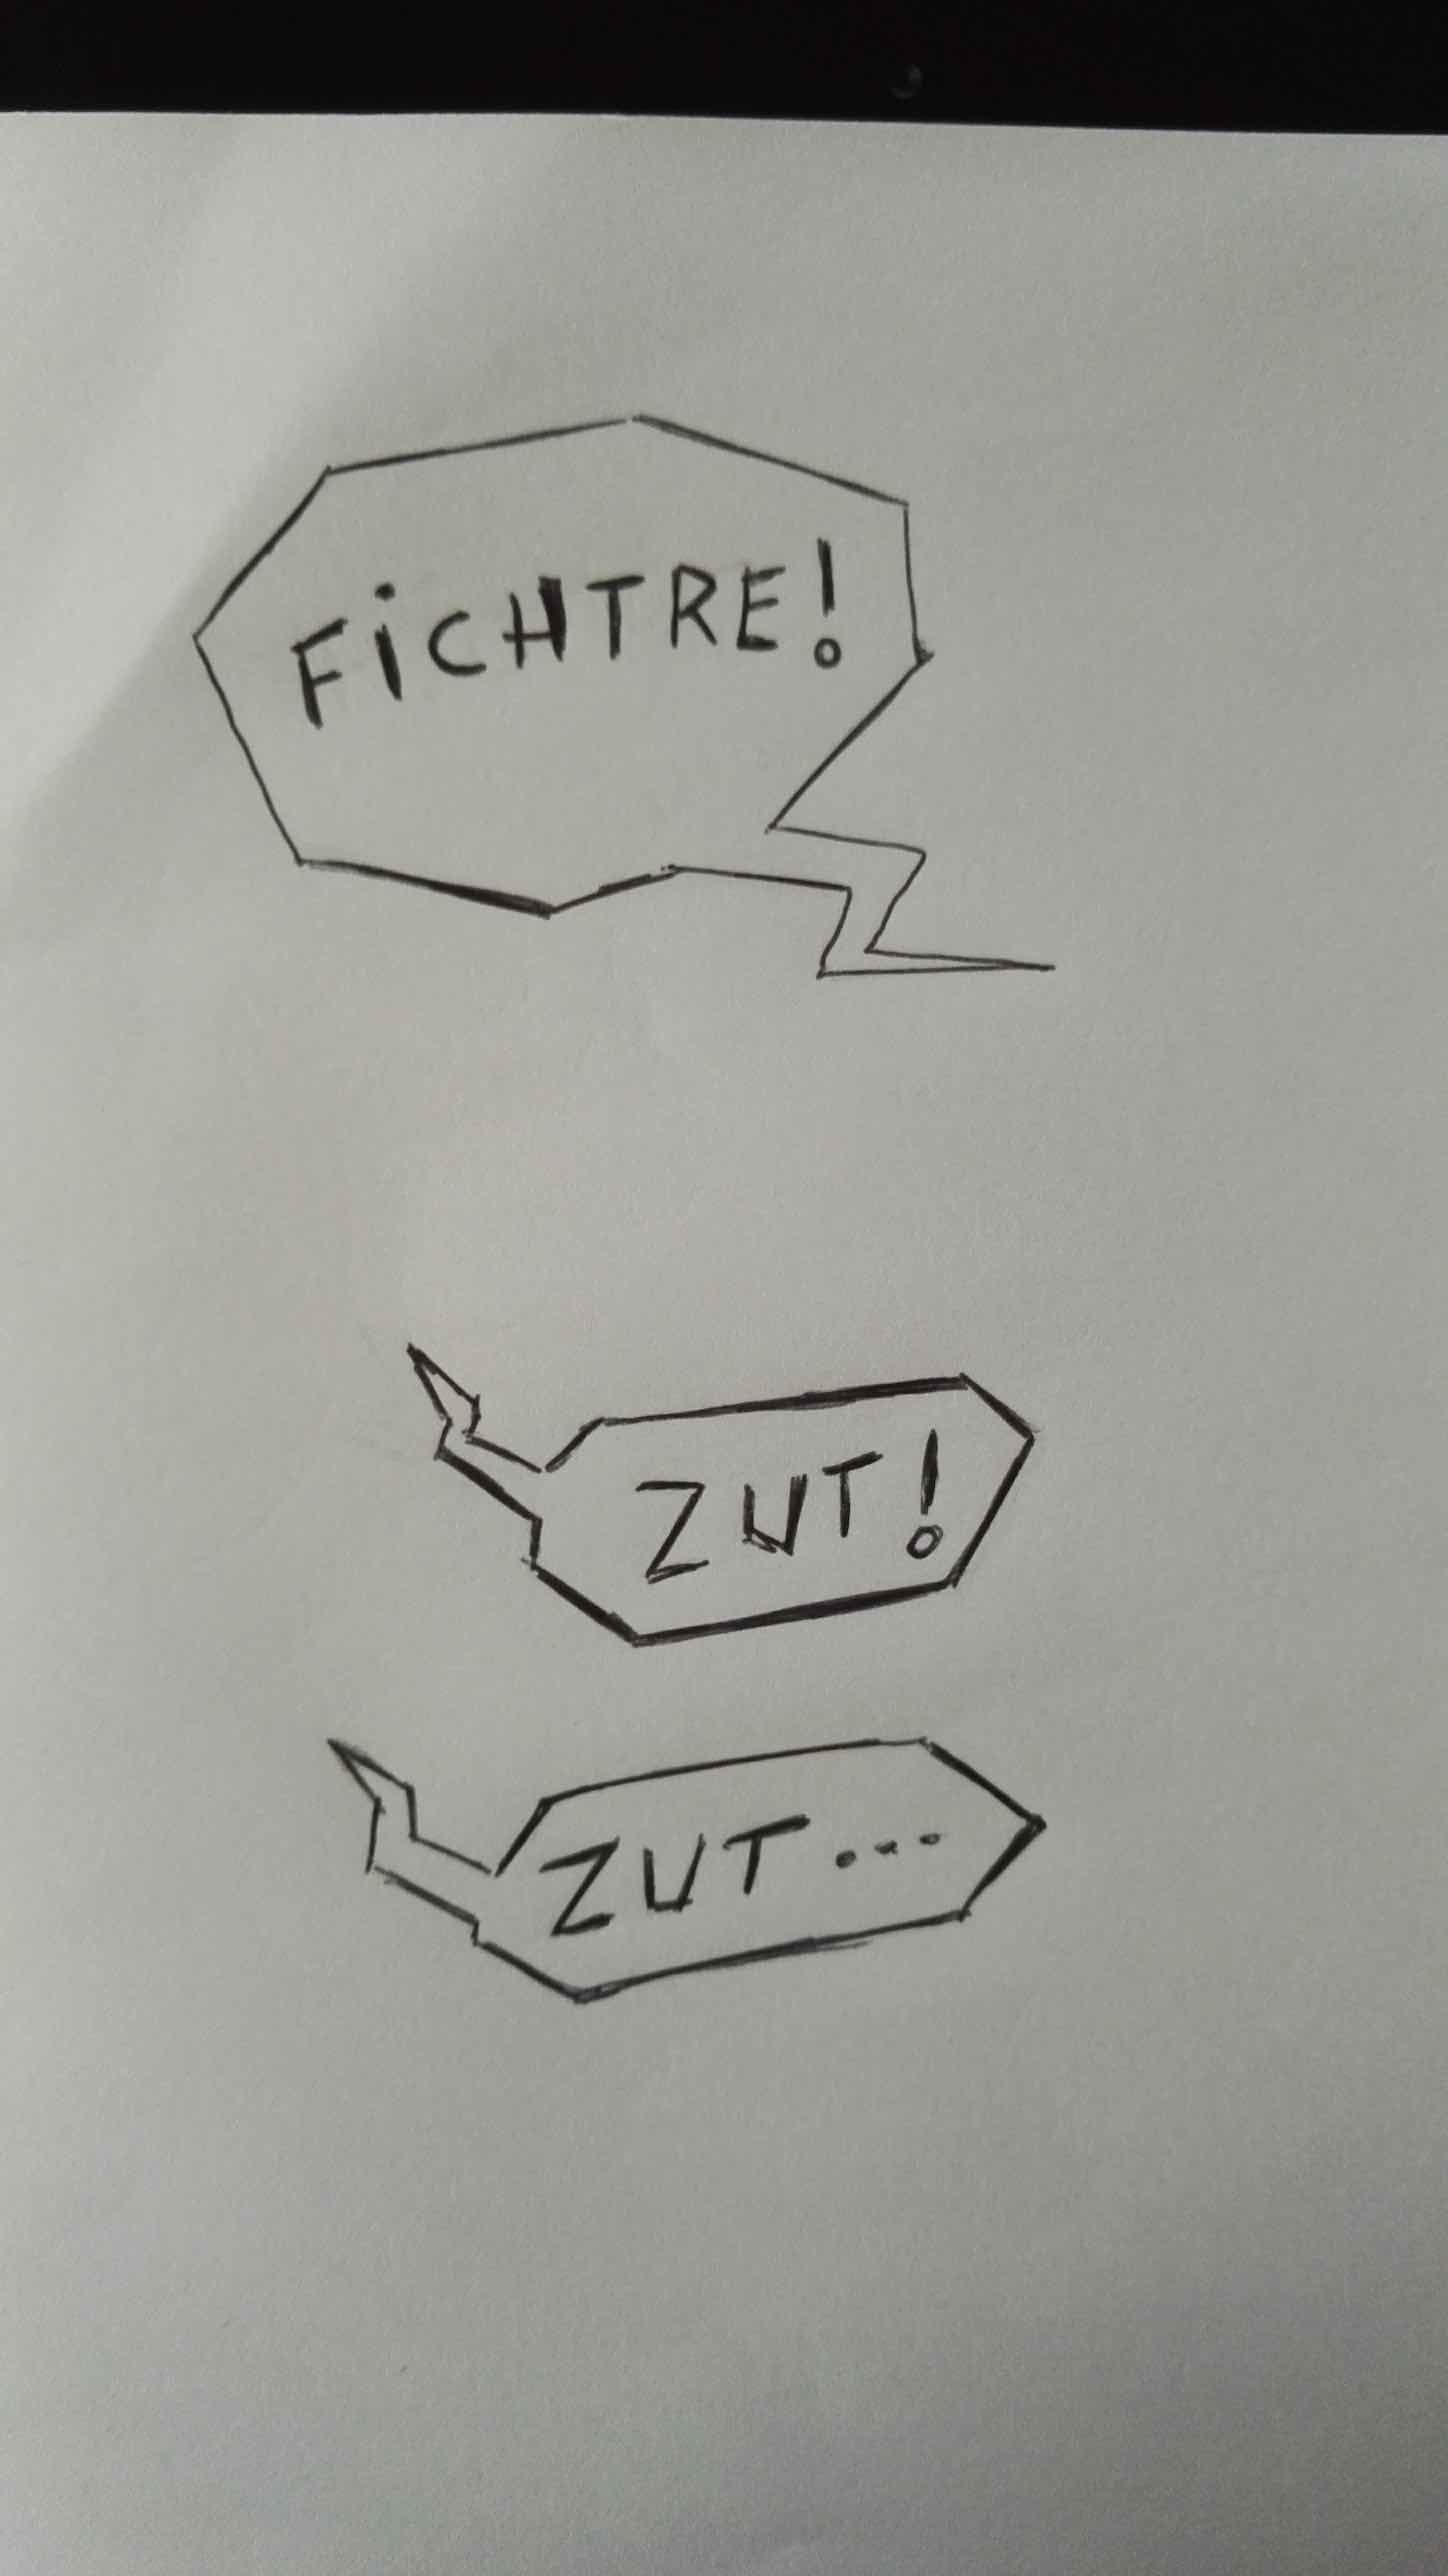 FiCHTRE!
ZUT!
ZUT...